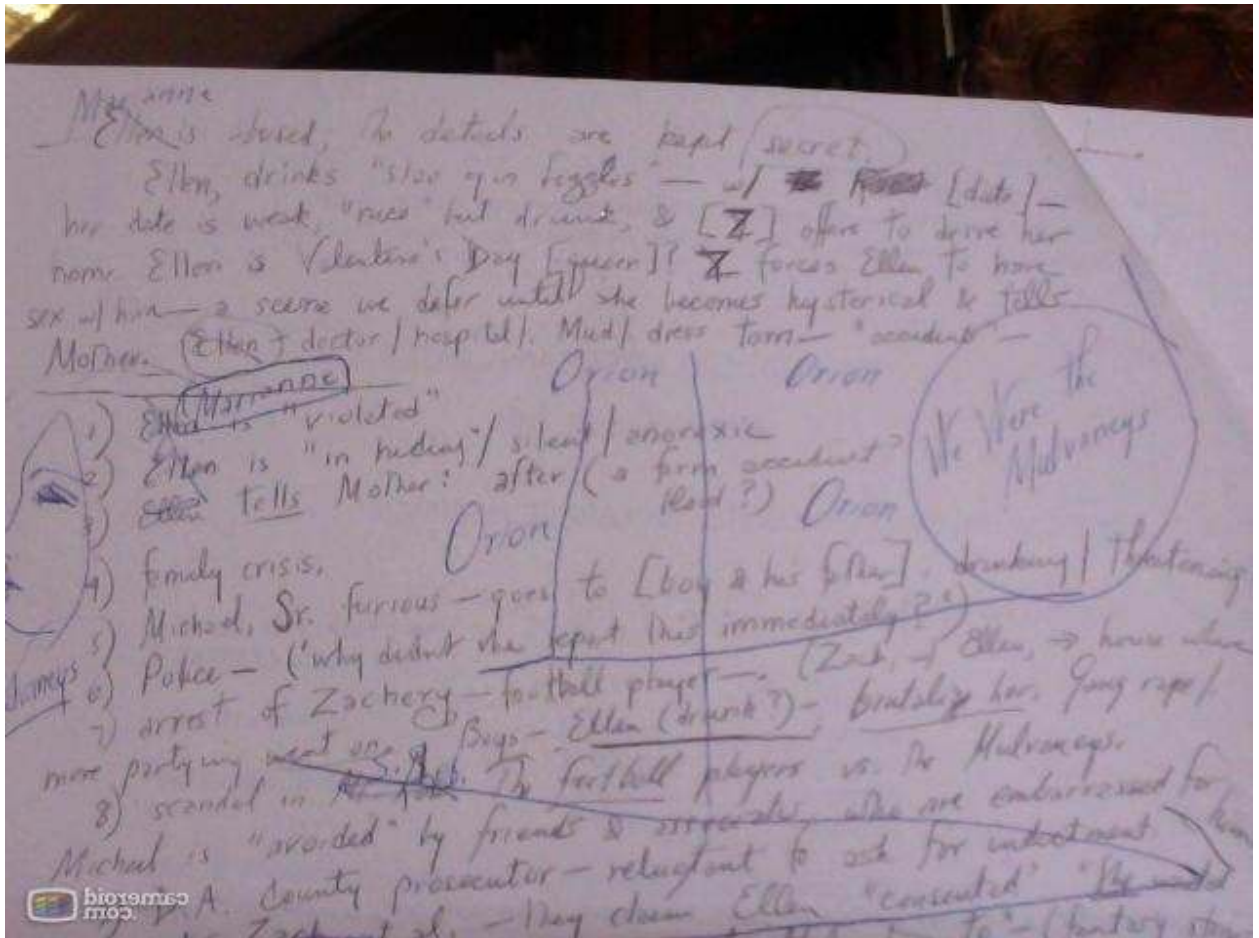 Marianne
Ellen is abused, the details are kept secret
Ellen, drinks "sloe gin fizzles" — w/ [date] —
her date is weak, "nice" but drunk, & [Z] offers to drive her
home. Ellen is Valentine's Day [queen]? Z forces Ellen to have
sex w/ him — a scene we defer until she becomes hysterical & tells
Mother. (Ellen → doctor / hospital). Mud / dress torn — "accident" —
Orion Orion
(Marianne)
1) Ellen is "violated"
2) Ellen is "in hiding" / silent / anorexic
3) Ellen tells Mother: after (a farm accident?
blood?) Orion
Orion
We Were the
Mulvaneys
4) family crisis.
5) Michael, Sr. furious — goes to [boy & his father]. drinking / threatening
6) Police — ('why didn't she report this immediately?')
7) arrest of Zachery — football player —. (Zach. → Ellen, → house where
more partying went on. Boys — Ellen (drunk?) — brutalize her. Gang rape /.
8) scandal in The football players vs. the Mulvaneys.
Michael is "avoided" by friends & associates, who are embarrassed for
him
D.A. County prosecutor — reluctant to ask for indictment
Zach et al. — they claim Ellen "consented"
to" — (fantasy
cameroid
com